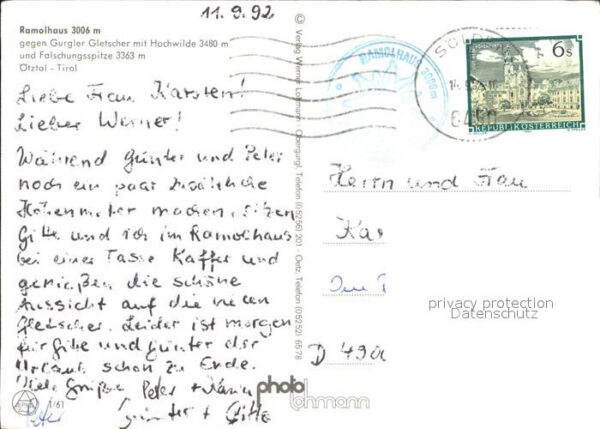 11.9.92
Ramolhaus 3006 m
gegen Gurgler Gletscher mit Hochwilde 3480 m
und Falschungsspitze 3363 m
Ötztal - Tirol
Liebe Frau Karsten!
Lieber Werner!
Während Günter und Peter
noch ein paar zusätzliche
Höhenmeter machen, sitzen
Gitte und ich im Ramolhaus
bei einer Tasse Kaffee und
genießen die schöne
Aussicht auf die vielen
Gletscher. Leider ist morgen
für Gitte und Günter der
Urlaub schon zu Ende.
Viele Grüße Peter + Karin
Günter + Gitte
Peter
1/61
© Verlag Werner Lohmann, Obergurgl, Telefon (05256) 201 - Oetz, Telefon (05252) 65 78
RAMOLHAUS 3006m
SÖLDEN
6450
6 S
REPUBLIK ÖSTERREICH
Herrn und Frau
Kar
D 490
privacy protection
Datenschutz
photo
lohmann